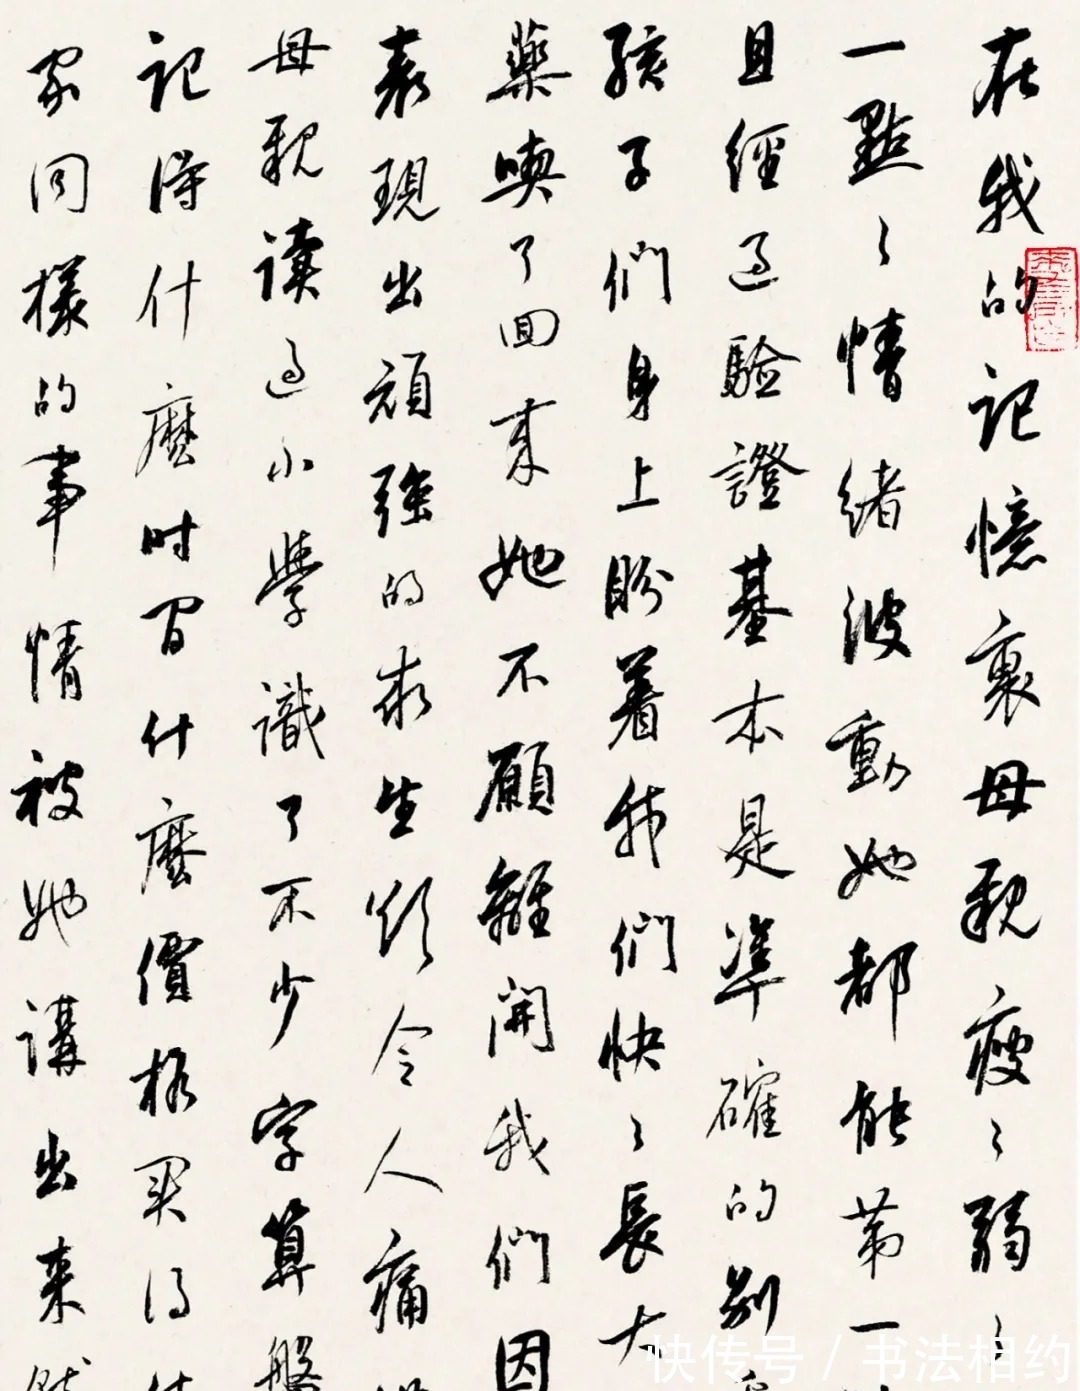 在我的記憶裏母親瘦々弱々
一點々情緒波動她都能第一
且經過驗證基本是準確的别
孩子們身上盼着我們快々長大
藥喫了回来她不願離開我們因
表現出頑強的求生欲令人痛
母親读过小學識了不少字算盤
記得什麽时间什麽價格买得什
家同樣的事情被她講出来
快传号 / 书法相约